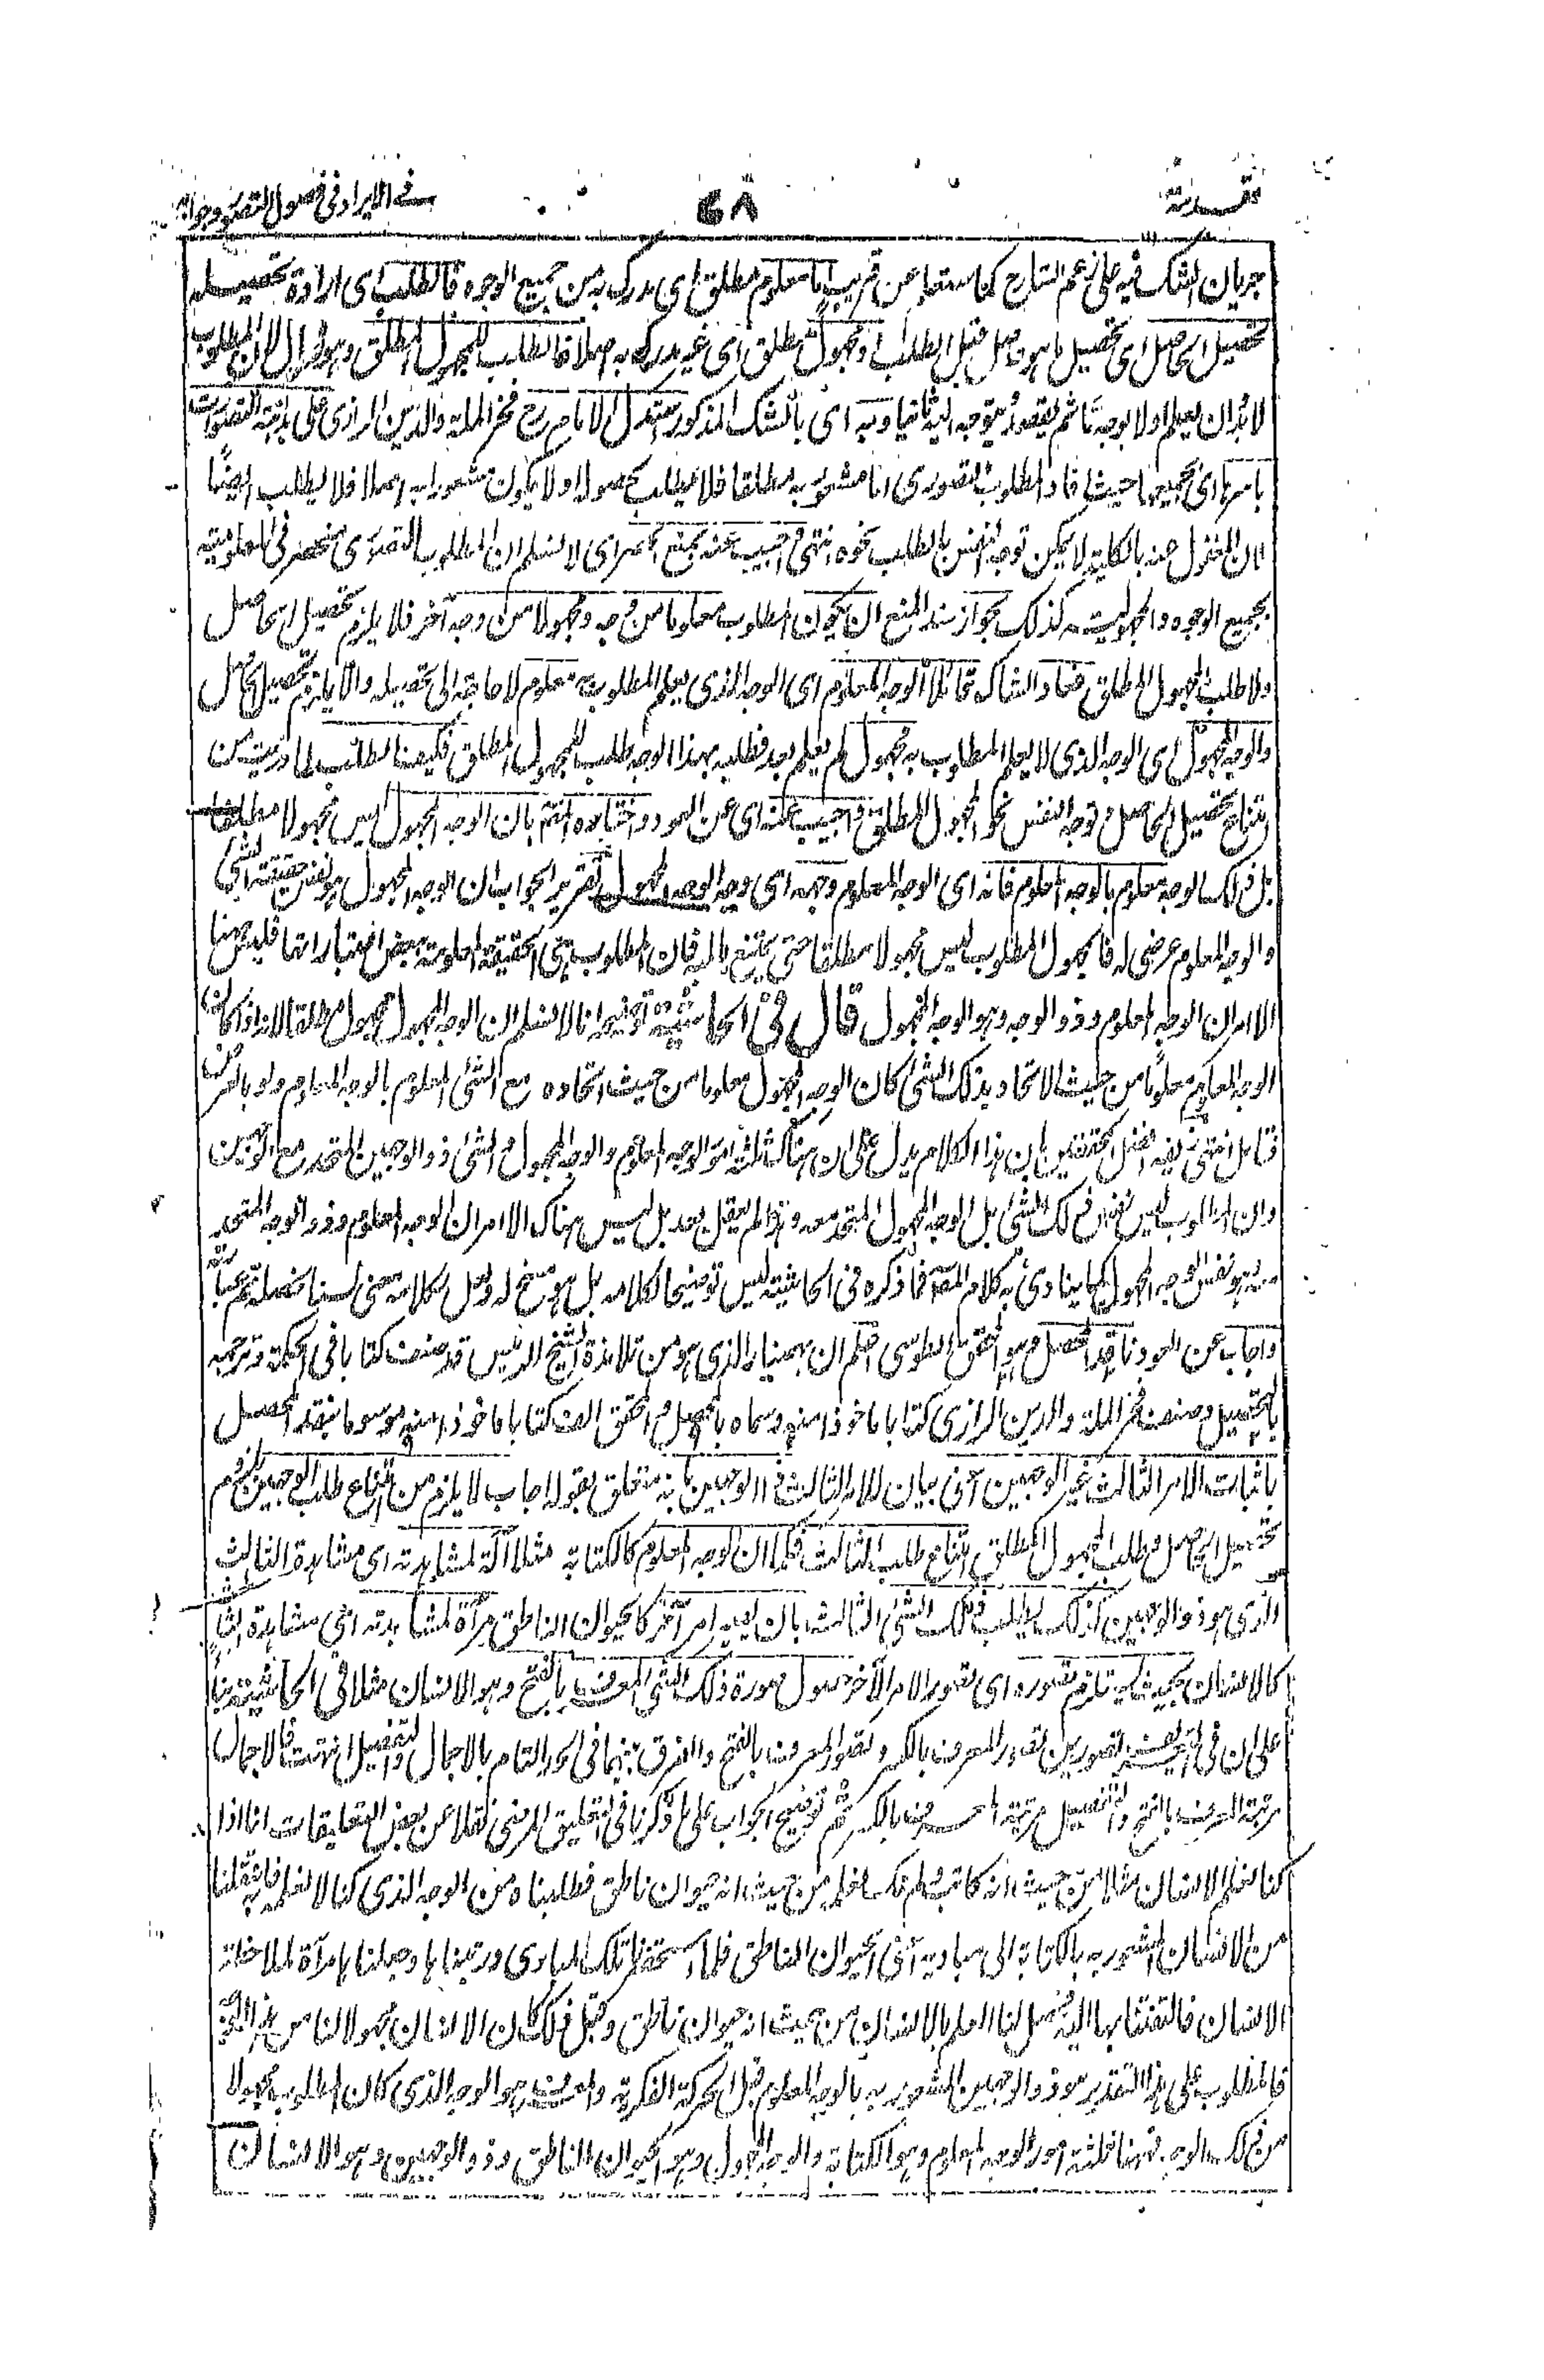 مقدمة
٦٨
في الايراد في حصول التصور وجوابه
جريان الشك فيه على زعم الشارح كما ستعلم عن قريب اما معلوم مطلق اى مدرك به من جميع الوجوه فالطلب اى ارادة تحصيله
تحصيل الحاصل اى تحصيل ما هو حاصل قبل الطلب او مجهول مطلق اى غير مدرك به اصلا فالطلب للمجهول المطلق وهو محال لان المطلوب
لا بد ان يعلم اولا بوجه ما ثم يقصد ويتوجه اليه ثانيا وبه اى بالشك المذكور استدل الامام رح فخر الملة والدين الرازى على بداهة التصورات
باسرها اى بجميعها حيث قال المطلوب التصورى اما مشعور به مطلقا فلا يطلب لحصوله او لا يكون مشعورا به اصلا فلا يطلب ايضاً
لان المغفول عنه بالكلية لا يمكن توجه النفس بالطلب نحوه انتهى واجيب عنه بمنع الحصر اى لا نسلم ان المطلوب التصورى منحصر فى المعلومية
بجميع الوجوه والمجهولية كذلك بجواز سند المنع ان يكون المطلوب معلوما من وجه ومجهولا من وجه آخر فلا يلزم تحصيل الحاصل
ولا طلب المجهول المطلق فعاد الشاك قائلاً الوجه المعلوم اى الوجه الذى يعلم المطلوب به معلوم لا حاجة الى تحصيله والا يلزم تحصيل الحاصل
والوجه المجهول اى الوجه الذى لا يعلم المطلوب به مجهول لم يعلم بعد فطلبه بهذا الوجه طلب للمجهول المطلق فكيف الطلب لما دريت من
امتناع تحصيل الحاصل وتوجه النفس نحو المجهول المطلق واجيب عنه اى عن العود واختاره المتم بان الوجه المجهول ليس مجهولا مطلقا
بل ذلك الوجه معلوم بالوجه المعلوم فانه اى الوجه المعلوم وجهه اى وجه الوجه المجهول تقرير الجواب ان الوجه المجهول هو نفس حقيقة الشئ
والوجه المعلوم عرضى له فالمجهول المطلوب ليس مجهولا مطلقا حتى يمتنع طلبه فان المطلوب هى الحقيقة المعلومة ببعض اعتباراتها فليس ههنا
الا امران الوجه المعلوم وذو الوجه وهو الوجه المجهول قال في الحاشية توضيحه انا لا نسلم ان الوجه المجهول مجهول مطلقا لانه اذا كان
الوجه المعلوم معلوماً من حيث الاتحاد بذلك الشئ كان الوجه المجهول معلوما من حيث اتحاده مع الشئ المعلوم بالوجه المعلوم ولو بالعرض
فتامل انتهى زيفه افضل المحققين بان هذا الكلام يدل على ان هناك ثلثة امور الوجه المعلوم والوجه المجهول والشئ ذو الوجهين المتحد مع الوجهين
وان المطلوب ليس نفس ذلك الشئ بل الوجه المجهول المتحد معه وهذا لم يعقل بعد بل ليس هناك الا امران الوجه المعلوم وذو الوجه المتحد
معه وهو نفس الوجه المجهول كما ينادى به كلام المصنف فما ذكره فى الحاشية ليس توضيحا لكلامه بل هو مسخ له ولعل لكلامه معنى لسنا نحصله
واجاب عن العود ناقد المحصل وهو المحقق الطوسى اعلم ان بهمنيار الذى هو من تلامذة الشيخ الرئيس قد صنف كتابا فى الحكمة وترجمه
بالتحصيل وصنف فخر الملة والدين الرازى كتابا ماخوذا منه وسماه بالمحصل والمحقق الف كتابا ماخوذا منه موسوما بنقد المحصل
باثبات الامر الثالث غير الوجهين اعنى بيان للامر الثالث ذا الوجهين بانه متعلق بقوله اجاب لا يلزم من امتناع طلب الوجهين للزوم
تحصيل الحاصل وطلب المجهول المطلق امتناع طلب الثالث فكما ان الوجه المعلوم كالكتابة مثلا آلة لمشاهدته اى مشاهدة الثالث
الذى هو ذو الوجهين كذلك يطلب ذلك الشئ الثالث بان يصير امر آخر كالحيوان الناطق مرآة لمشاهدته اى مشاهدة الثالث
كالانسان بحيث يستلزم تصوره اى تصور الامر الآخر حصول صورة ذلك الشئ المعرف بالفتح وهو الانسان مثلا فى الحاشية بناءً
على ان فى التعريف تصورين تصور المعرف بالكسر وتصور المعرف بالفتح والفرق بينهما فى الحد التام بالاجمال والتفصيل انتهت فالاجمال
مرتبة المعرف بالفتح والتفصيل مرتبة المعرف بالكسر ثم توضيح الجواب على ما ذكرنا فى التعليق المرضى نقلا عن بعض التعليقات انا اذا
كنا نعلم الانسان مثلا من حيث انه كاتب ولم نك نعلم من حيث انه حيوان ناطق فطلبناه من الوجه الذى كنا لا نعلم فانتقلنا
من الانسان المشعور به بالكتابة الى مباديه اعنى الحيوان الناطق فلما استحضرنا تلك المبادى ورتبناها وجعلناها مرآة لملاحظة
الانسان فالتفتنا بها اليه فحصل لنا العلم بالانسان من حيث انه حيوان ناطق وقبل ذلك كان الانسان مجهولا لنا من هذا الوجه
فالمطلوب على هذا التقدير هو ذو الوجهين المشعور به بالوجه المعلوم قبل الحركة الفكرية والمعرف هو الوجه الذى كان المطلوب مجهولا
من ذلك الوجه فههنا ثلثة امور الوجه المعلوم وهو الكتابة والوجه المجهول وهو الحيوان الناطق وذو الوجهين وهو الانسان